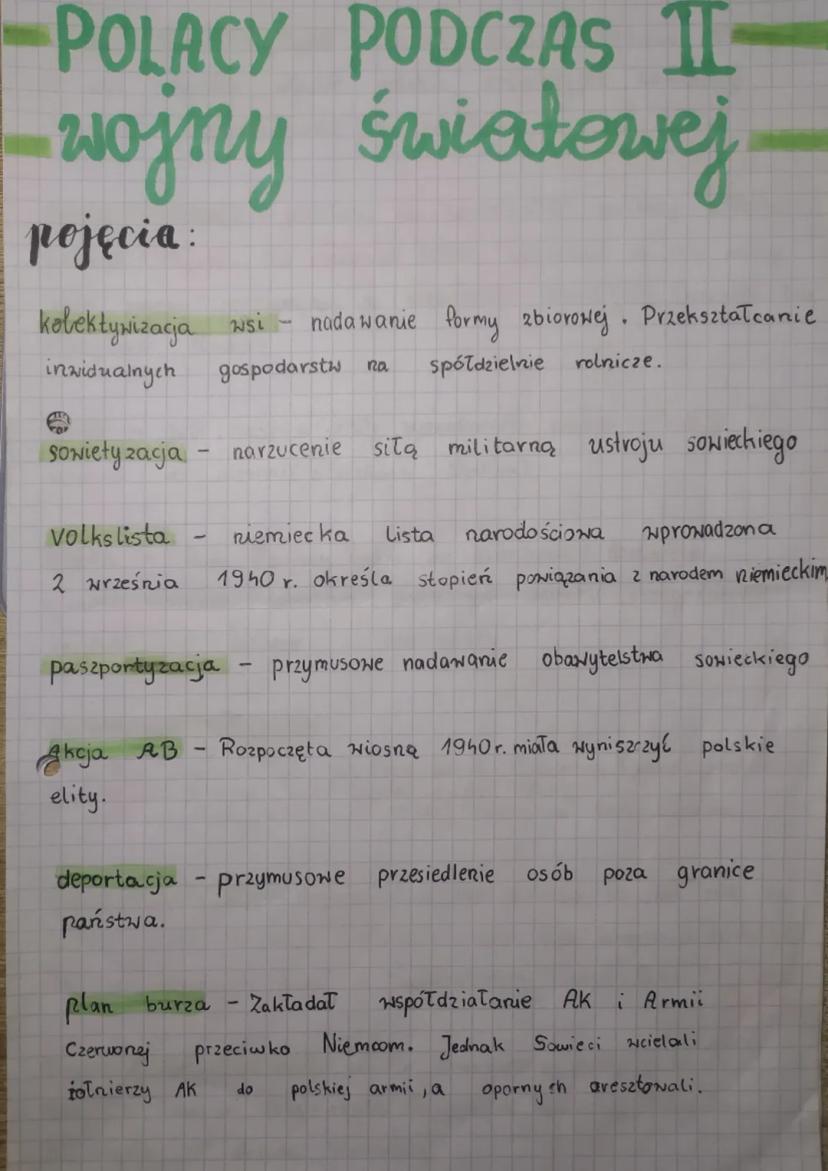 POLACY PODCZAS II
wojny światowej
pojęcia:
kolektywizacja wsi - nadawanie formy zbiorowej. Przekształcanie
inwidualnych gospodarstw na spółdzielnie rolnicze.
sowietyzacja - narzucenie siłą militarną ustroju sowieckiego
volkslista - niemiecka lista narodościowa wprowadzona
2 września 1940 r. określa stopień powiązania z narodem niemieckim
paszportyzacja - przymusowe nadawanie obawytelstwa sowieckiego
Akcja AB - Rozpoczęta wiosną 1940 r. miała wyniszczyć polskie
elity.
deportacja - przymusowe przesiedlenie osób poza granice
państwa.
plan burza - Zakładał współdziałanie AK i Armii
Czerwonej przeciwko Niemcom. Jednak Sowieci wcielali
żołnierzy AK do polskiej armii, a opornych aresztowali.